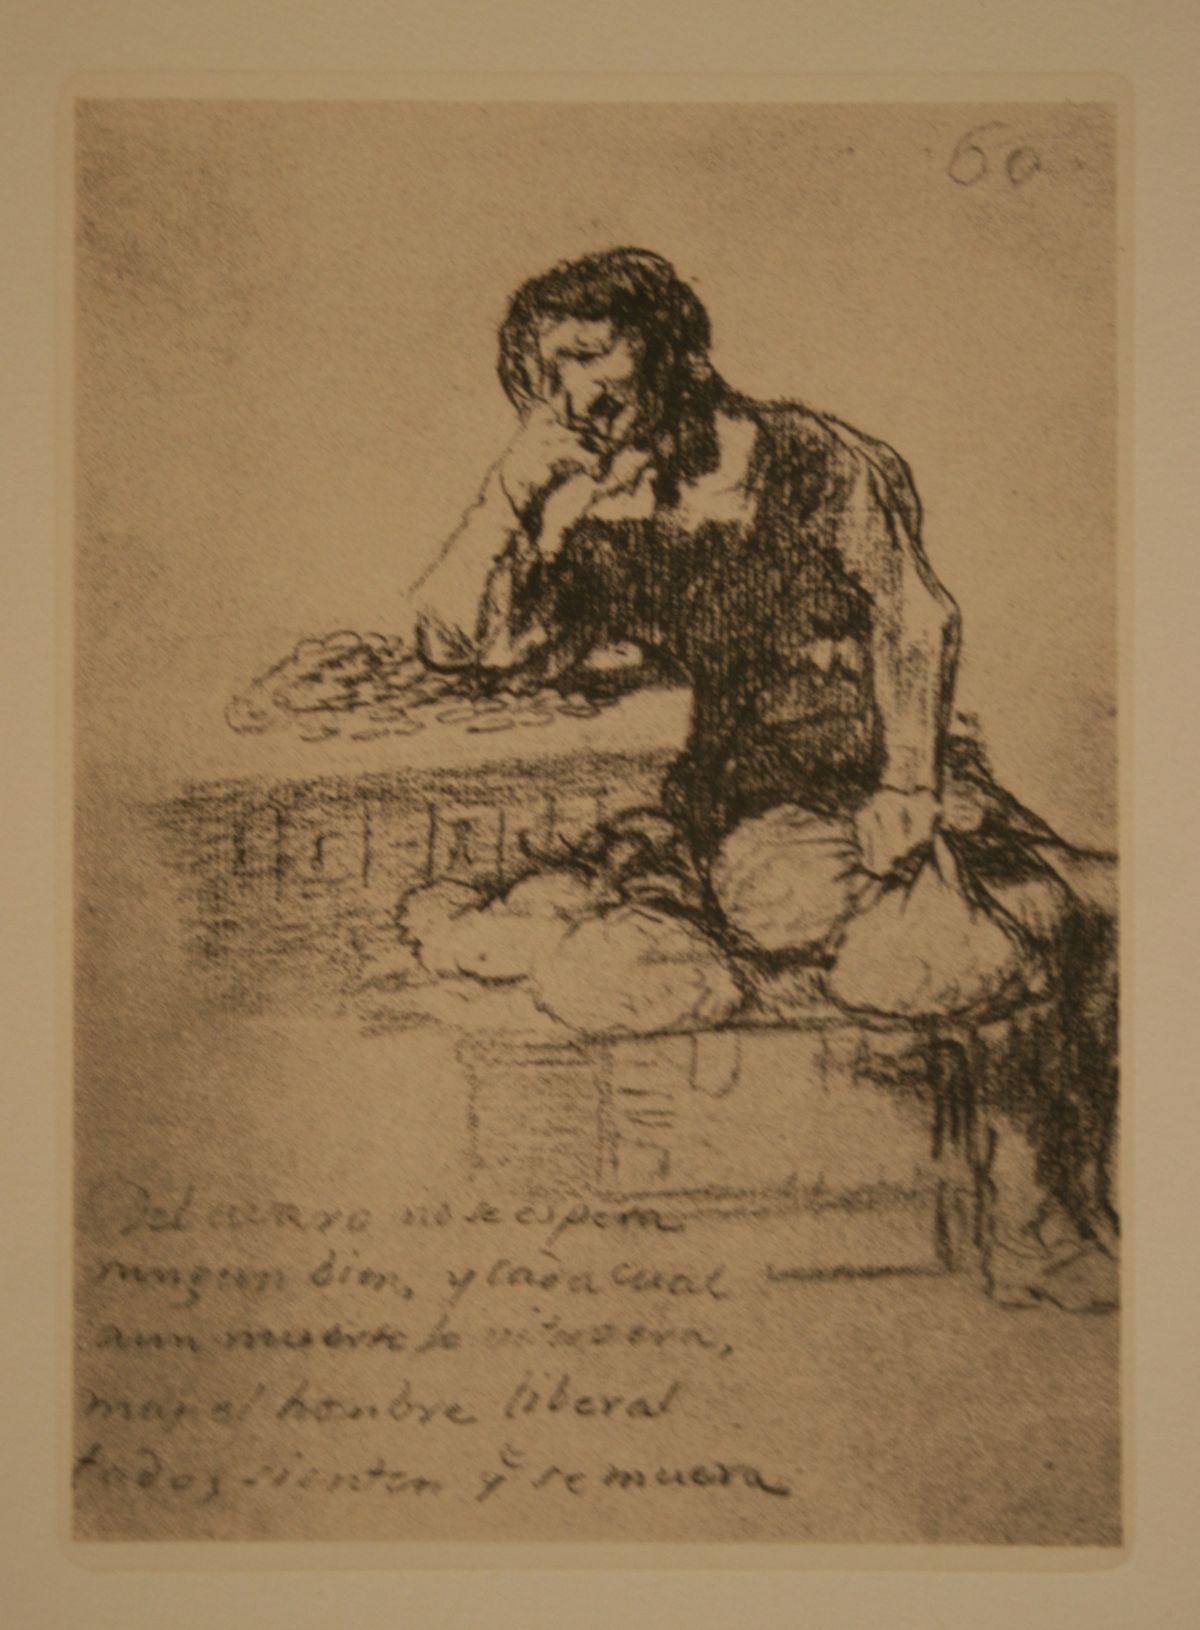 60
Del avaro no se espera
ningun bien, y cada cual
aun muerte le vitupera,
mas al hombre liberal
todos sienten q̃ se muera